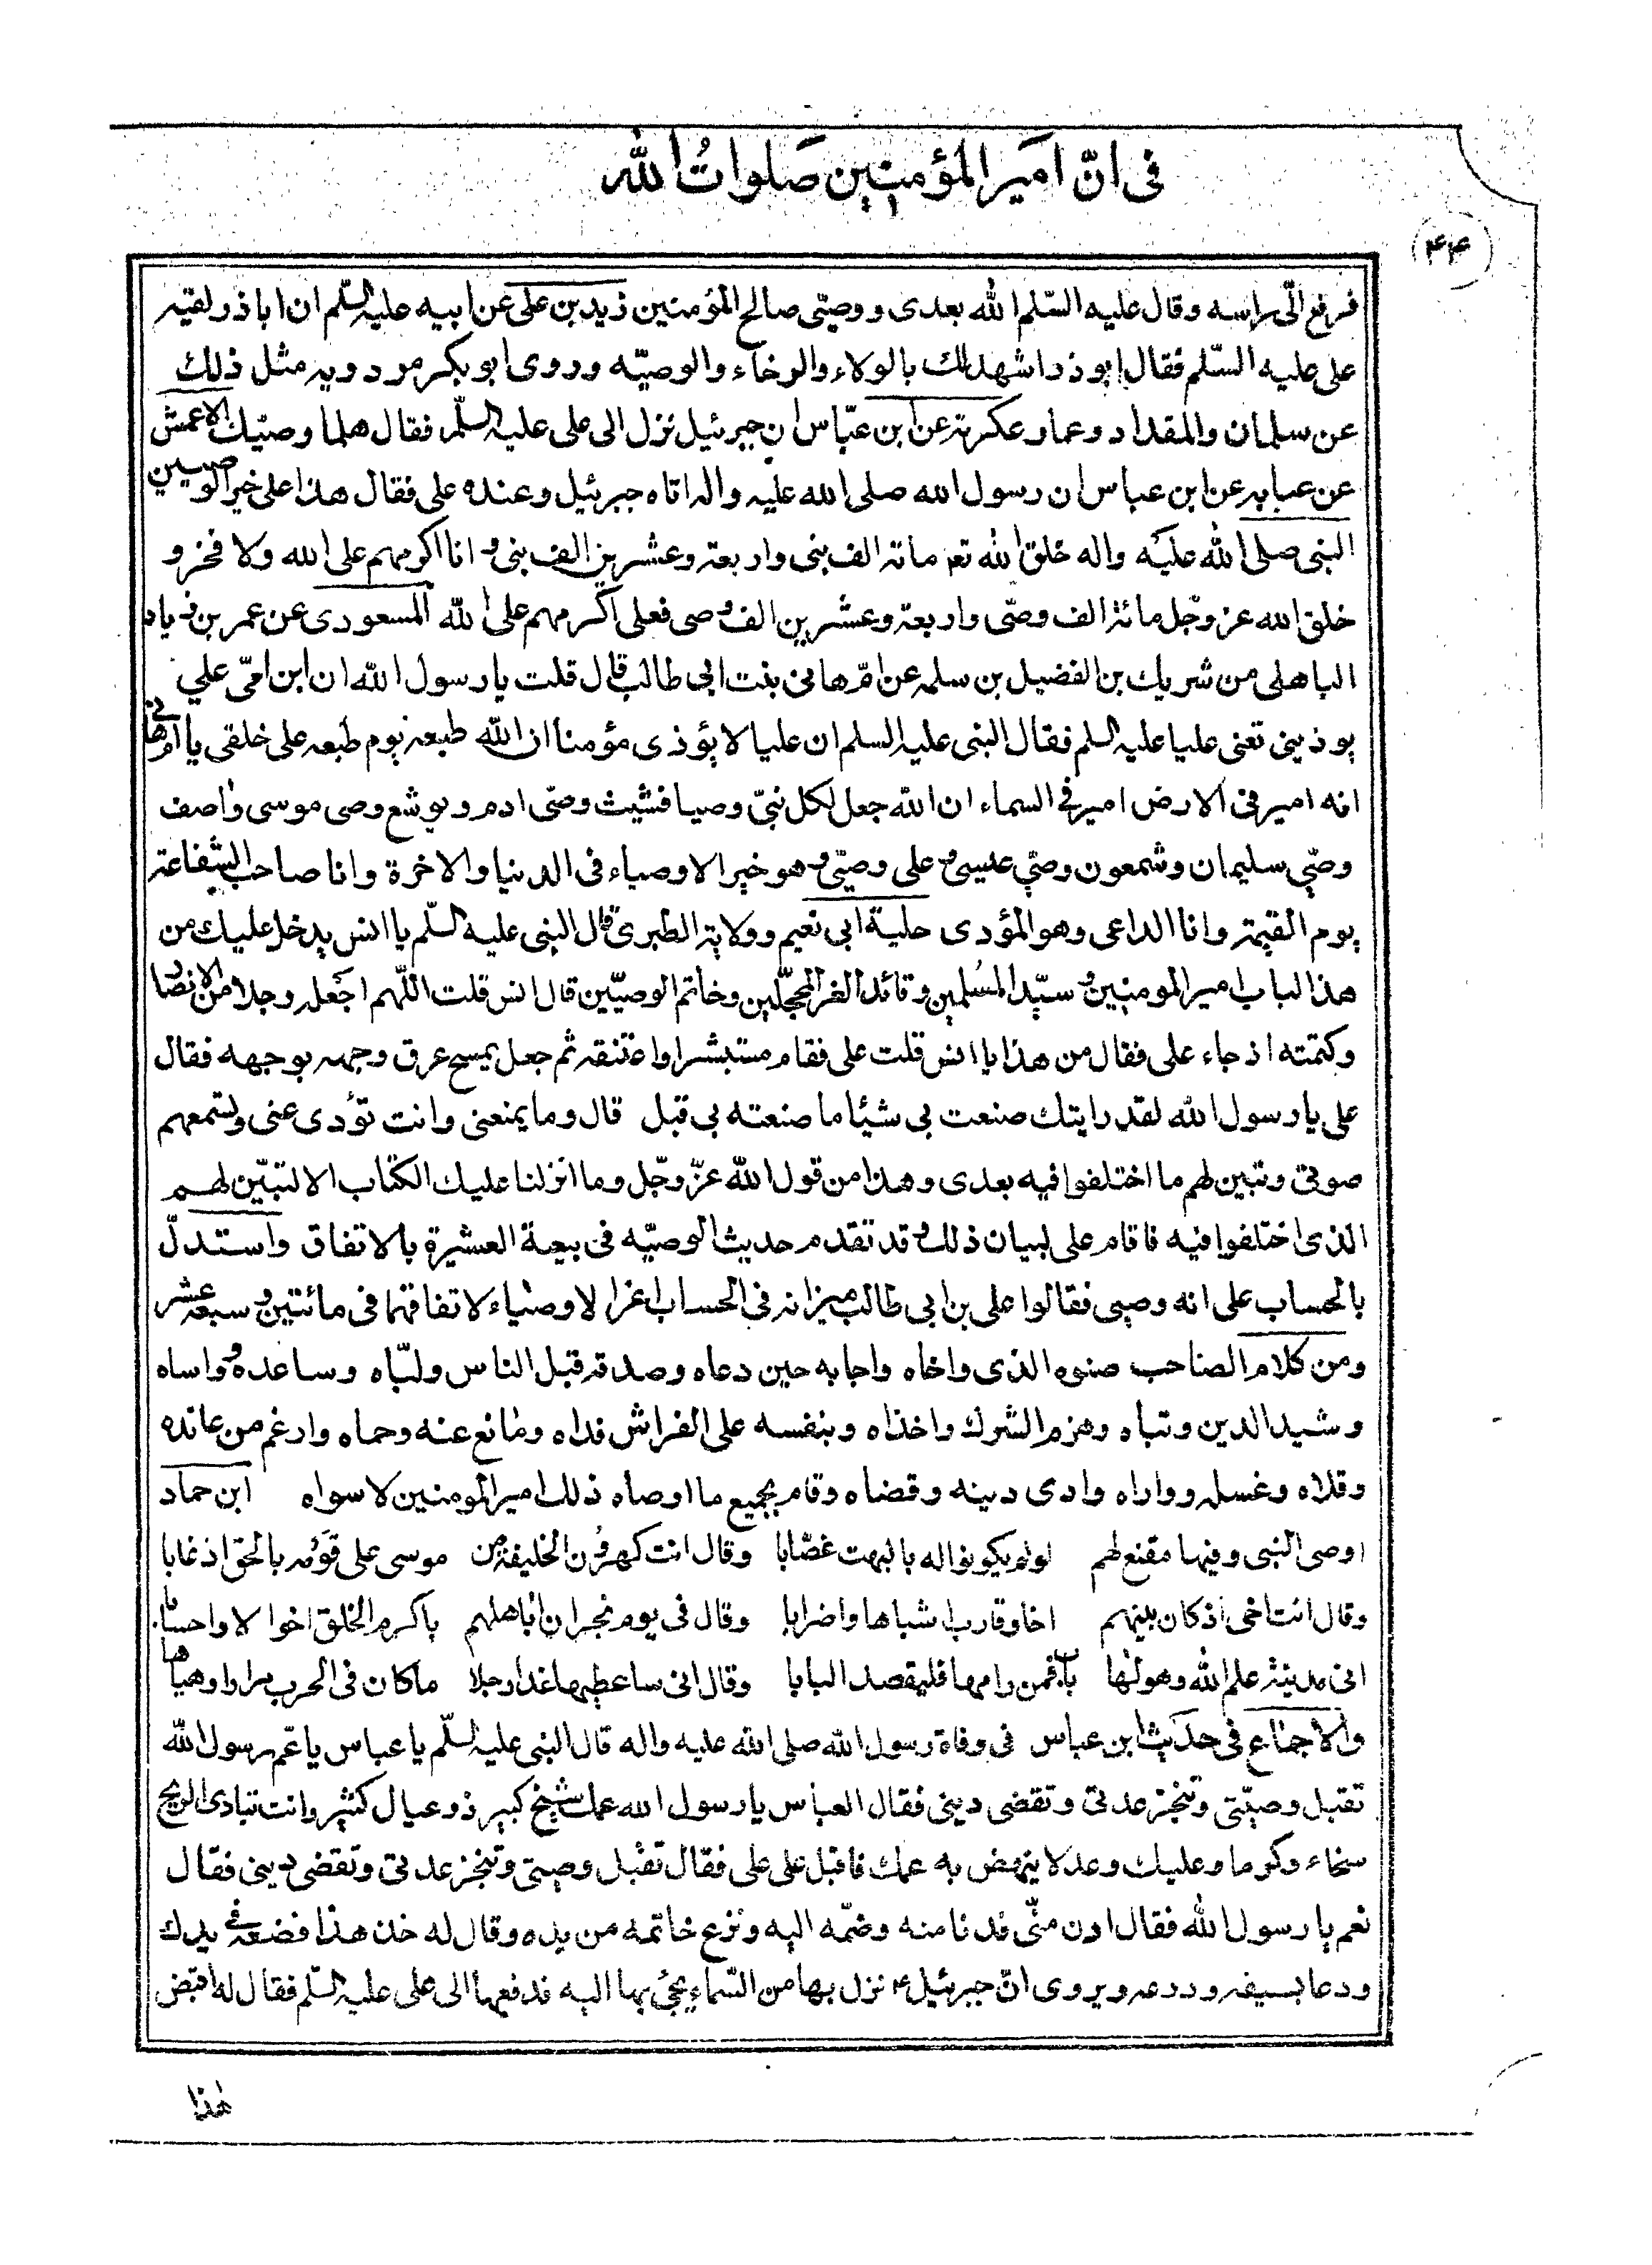 في انّ امير المؤمنين صلوات الله
۴۴
فرفع الّى راسه وقال عليه السّلم الله بعدى ووصيّى صالح المؤمنين زيد بن على عن ابيه عليه السّلم ان اباذر لقيه
على عليه السّلم فقال ابوذر اشهد لك بالولاء والوخاء والوصيّه وروى ابو بكر مردويه مثل ذلك
عن سلمان والمقداد وعمار وعكرمة عن ابن عبّاس ان جبرئيل نزل الى على عليه السلّم فقال هلما وصيّك الاعمش
عن عبايه عن ابن عباس ان رسول الله صلى الله عليه واله اتاه جبرئيل وعنده على فقال هذا على خير الوصيين
النبى صلى الله عليه واله خلق الله تع مائة الف نبى واربعة وعشرين الف نبى و انا اكرمهم على الله ولا فخر و
خلق الله عز وجّل مائة الف وصّى واربعة وعشرين الف وصى فعلى اكرمهم على الله المسعودى عن عمر بن زياد
الباهلى من شريك بن الفضيل بن سلمه عن امّ هانى بنت ابى طالب قال قلت يا رسول الله ان ابن امّى علي
يوذينى تعنى عليا عليه السلم فقال النبى عليه السلم ان عليا لا يؤذى مؤمنا ان الله طبعه يوم طبعه على خلقى يا ام هانى
انه امير فى الارض امير فى السماء ان الله جعل لكل نبىّ وصيا فشيث وصّى ادم ويوشع وصى موسى واصف
وصّى سليمان وشمعون وصّى عيسى و على وصيّى و هو خير الاوصياء فى الدنيا والاخرة وانا صاحب الشفاعة
يوم القيمة وانا الداعى وهو المؤدى حلية ابى نعيم وولاية الطبرى قال النبى عليه السلّم يا انس يدخل عليك من
هذا الباب امير المومنين و سيّد المسلمين وقائد الغر المحجّلين وخاتم الوصيّين قال انس قلت اللّهم اجعله رجلا من الانصار
وكتمته اذ جاء على فقال من هذا يا انس قلت على فقام مستبشرا واعتنقه ثم جعل يمسح عرق وجهه بوجهه فقال
على يا رسول الله لقد رايتك صنعت بى شيئا ما صنعته بى قبل قال وما يمنعنى وانت تؤدى عنى وتسمعهم
صوتى وتبين لهم ما اختلفوا فيه بعدى وهذا من قول الله عزّ وجّل وما انزلنا عليك الكتاب الا لتبيّن لهم
الذى اختلفوا فيه فاقام على لبيان ذلك و قد تقدم حديث الوصيّه فى بيعة العشيرة بالاتفاق واستدلّ
بالحساب على انه وصيى فقالوا على بن ابى طالب ميزانه فى الحساب اعز الاوصياء لاتفاقهما فى مائتين و سبعه عشر
ومن كلام الصاحب صنوه الذى واخاه واجابه حين دعاه وصدقه قبل الناس ولبّاه وساعده و واساه
وشيد الدين وبناه وهزم الشرك واخذاه وبنفسه على الفراش فداه ومانع عنه وحماه وارغم من عانده
وقلاه وغسله وواراه وادى دينه وقضاه وقام بجميع ما اوصاه ذلك امير المومنين لاسواه ابن حماد
اوصى النبى وفيها مقنع لهم لو لم يكونوا له بالبهت غصّابا وقال انت كهرون الخليفة من موسى على قومه بالحق اذ غابا
وقال انت اخى اذ كان بينهم اخا وقارب اشباها واضرابا وقال فى يوم نجران اباهلهم باكرم الخلق اخوالا واحسابا
انى مدينة علم الله وهو لها باب فمن رامها فليقصد البابا وقال انى ساعطيها غدا رجلا ماكان فى الحرب فرارا وهيابا
والاجماع فى حديث ابن عباس فى وفاة رسول الله صلى الله عليه واله قال النبى عليه السلّم يا عباس يا عّم رسول الله
تقبل وصيّتى وتنجز عدتى وتقضى دينى فقال العباس يا رسول الله عمك شيخ كبير ذو عيال كثير وانت تبادى الريح
سخاء وكرما وعليك وعد لا ينهض به عمك فاقبل على على فقال تقبل وصيتى وتنجز عدتى وتقضى دينى فقال
نعم يا رسول الله فقال ادن منّى فدنا منه وضمّه اليه ونزع خاتمه من يده وقال له خذ هذا فضعه فى يدك
ودعا بسيفه ودرعه ويروى انّ جبرئيل ع نزل بها من السّماء يجئ بها اليه فدفعها الى على عليه السّلم فقال له اقبض
هذا